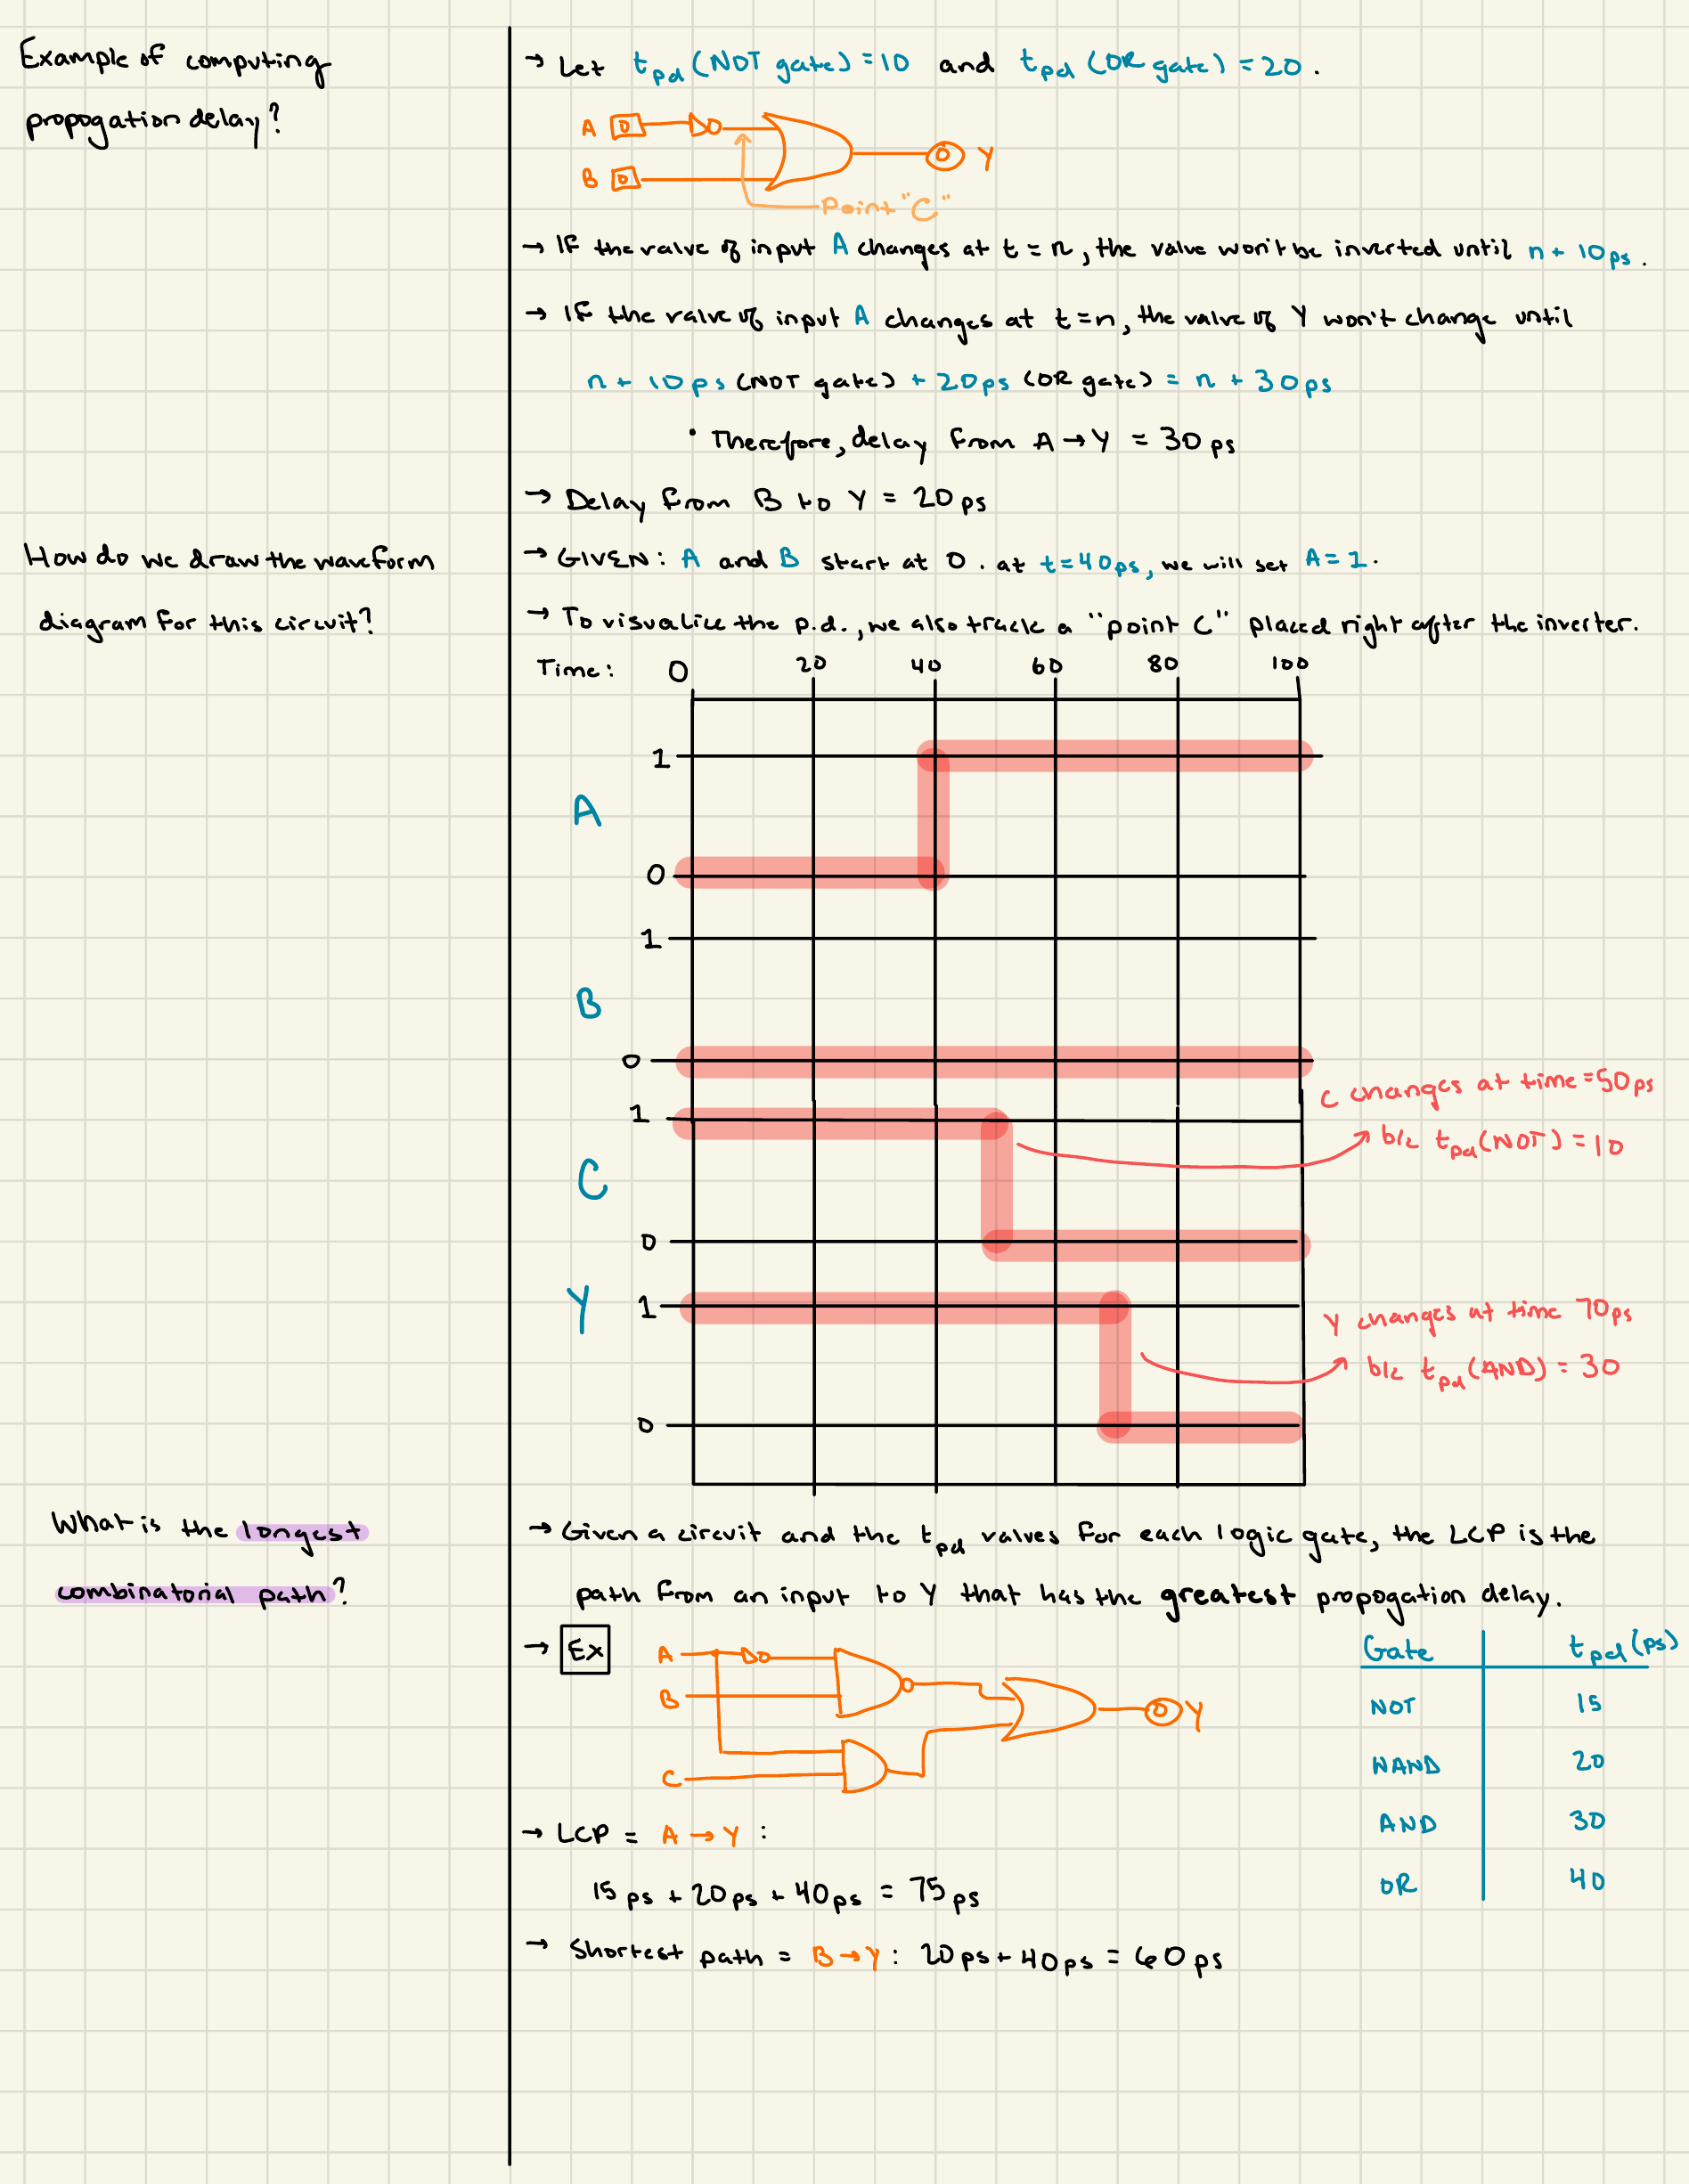 Example of computing
propogation delay?
→ Let tpd (NOT gate) = 10 and tpd (OR gate) = 20.
A 0
B 0
0 Y
Point "C"
→ If the value of input A changes at t = n, the value won't be inverted until n + 10ps.
→ If the value of input A changes at t=n, the value of Y won't change until
n + 10ps (NOT gate) + 20ps (OR gate) = n + 30ps
• Therefore, delay from A → Y = 30ps
→ Delay from B to Y = 20ps
How do we draw the waveform
diagram for this circuit?
→ GIVEN: A and B start at 0. at t=40ps, we will set A=1.
→ To visualize the p.d., we also track a "point C" placed right after the inverter.
Time: 0 20 40 60 80 100
1
A
0
1
B
0
C changes at time=50ps
b/c tpd(NOT) = 10
1
C
0
Y 1
Y changes at time 70ps
b/c tpd (AND) = 30
0
What is the longest
combinatorial path?
→ Given a circuit and the tpd values for each logic gate, the LCP is the
path from an input to Y that has the greatest propogation delay.
→ Ex
A
B
C
0 Y
Gate tpd (ps)
NOT 15
NAND 20
AND 30
OR 40
→ LCP = A → Y :
15ps + 20ps + 40ps = 75ps
→ Shortest path = B → Y: 20ps + 40ps = 60ps